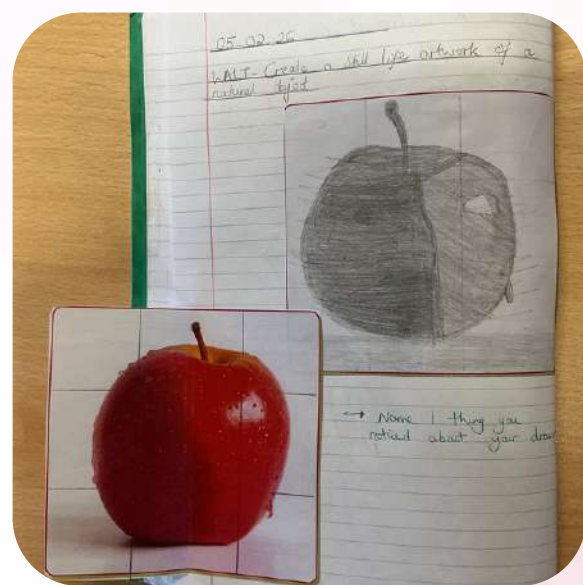 05.02.26
WALT- Create a still life artwork of a
natural object
→ Name 1 thing you
noticed about your draw